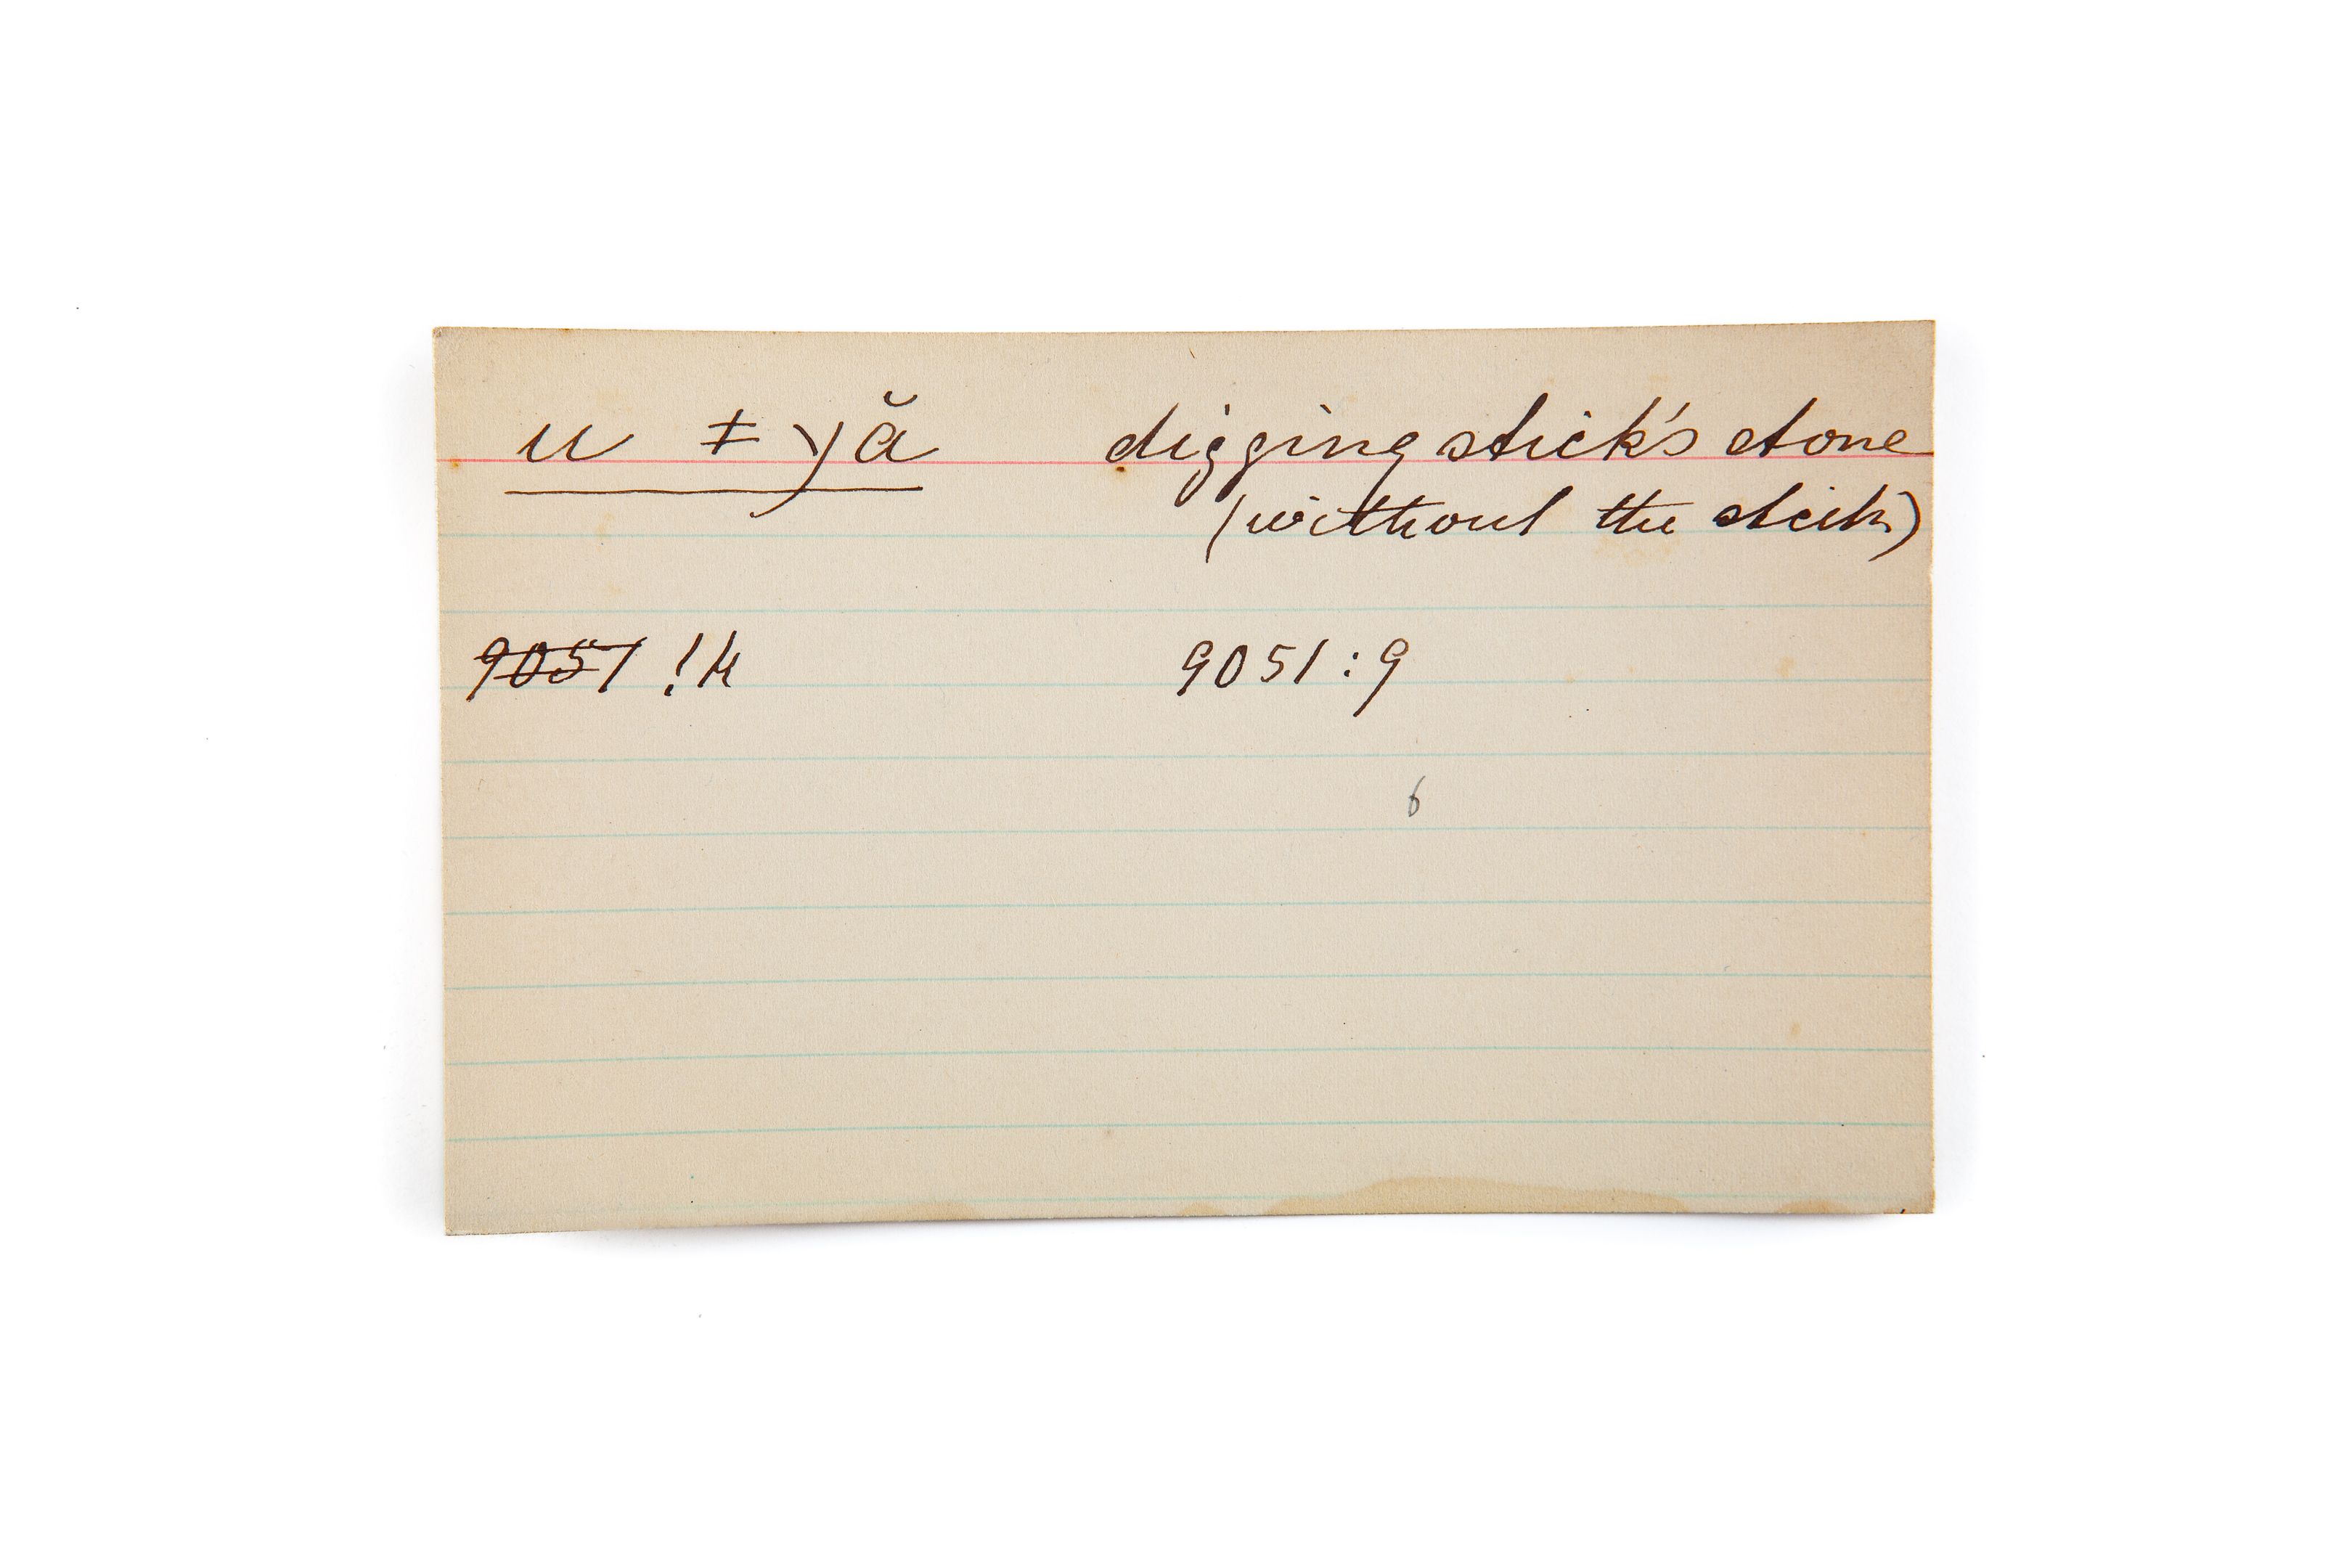 u ǂyă digging stick's stone
(without the stick)
9051 !k 9051:9
6